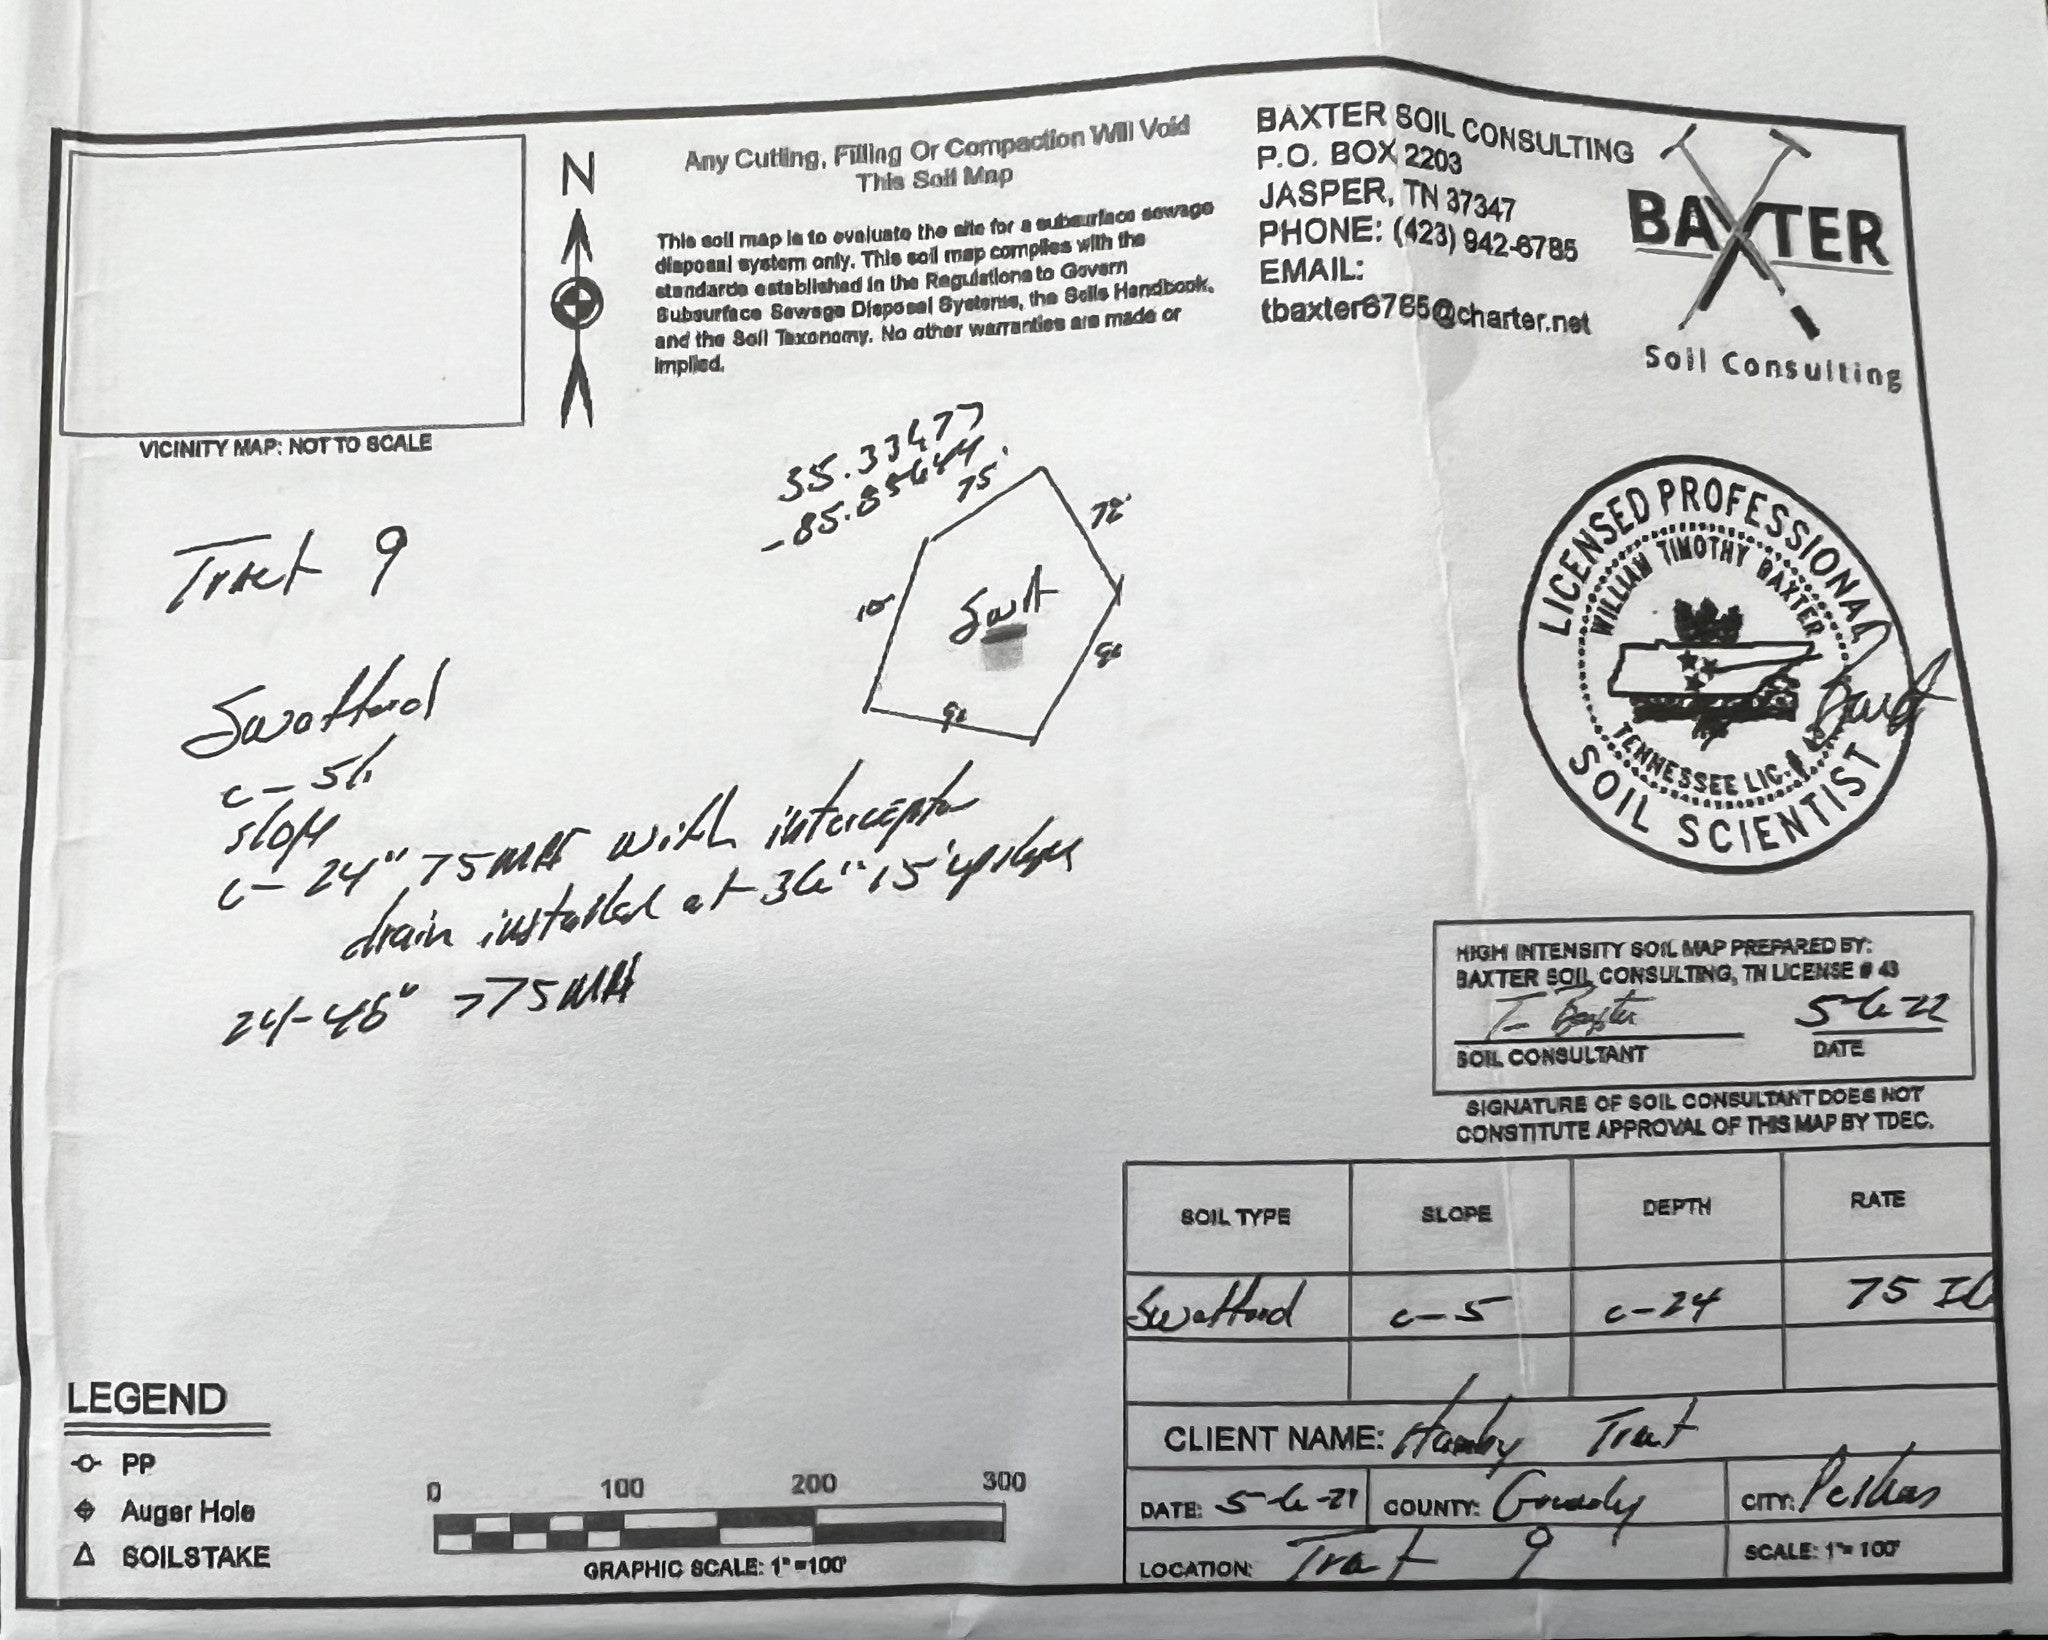 N
Any Cutting, Filling Or Compaction Will Void
This Soil Map
This soil map is to evaluate the site for a subsurface sewage
disposal system only. This soil map complies with the
standards established in the Regulations to Govern
Subsurface Sewage Disposal Systems, the Soils Handbook,
and the Soil Taxonomy. No other warranties are made or
implied.
BAXTER SOIL CONSULTING
P.O. BOX 2203
JASPER, TN 37347
PHONE: (423) 942-6785
EMAIL:
tbaxter6785@charter.net
BAXTER
Soil Consulting
VICINITY MAP: NOT TO SCALE
75'
Tract 9
LICENSED PROFESSIONAL
WILLIAM TIMOTHY BAXTER
TENNESSEE LIC.
SOIL SCIENTIST
slope
24" 75 with interceptor
drain installed at 36" 15' upslope
24-48" >75
HIGH INTENSITY SOIL MAP PREPARED BY:
BAXTER SOIL CONSULTING, TN LICENSE # 43
T Baxter 5-6-22
SOIL CONSULTANT DATE
SIGNATURE OF SOIL CONSULTANT DOES NOT
CONSTITUTE APPROVAL OF THIS MAP BY TDEC.
SOIL TYPE SLOPE DEPTH RATE
75
CLIENT NAME: Tract
DATE: COUNTY: Grundy CITY: Pelham
LOCATION: Tract 9 SCALE: 1"=100'
LEGEND
PP
Auger Hole
SOILSTAKE
0 100 200 300
GRAPHIC SCALE: 1"=100'